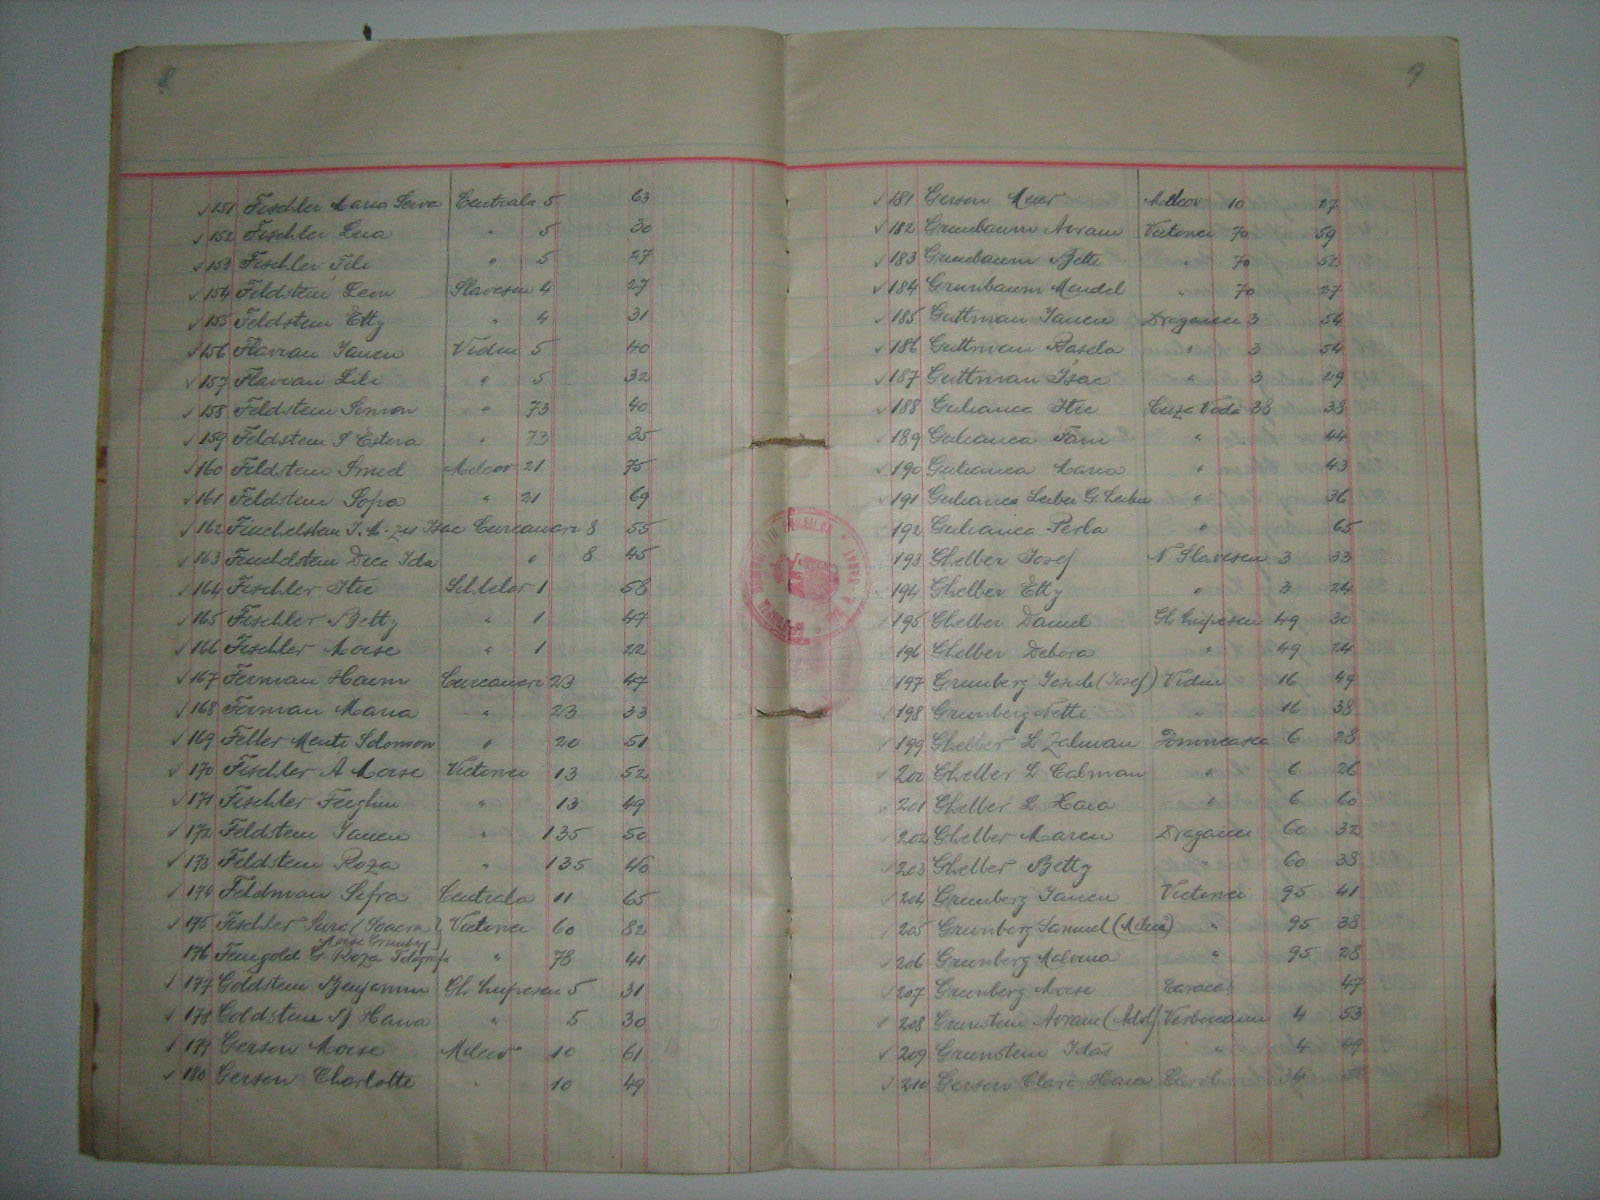 8
151 Fischler Maria Seiva Centrala 5 63
152 Fischler Lica " 5 30
153 Fischler Fili " 5 27
154 Feldstein Leon Slavescu 4 27
155 Feldstein Etty " 4 31
156 Flavian Iancu Vidin 5 40
157 Flavian Lili " 5 32
158 Feldstein Simon " 73 40
159 Feldstein S Estera " 73 35
160 Feldstein Smil Milcov 21 75
161 Feldstein Sofia " 21 69
162 Finchelstein I. M. zis Isac Curcanari 8 55
163 Finchelstein Ida " 8 45
164 Fischler Itic 1 58
165 Fischler Betty " 1 47
166 Fischler Moise " 1 22
167 Ferman Haim Curcanari 23 47
168 Ferman Maria " 23 33
169 Feller Solomon " 20 51
170 Fischler A Moise Victoria 13 52
171 Fischler Feighin " 13 49
172 Feldstein Iancu " 135 50
173 Feldstein Roza " 135 46
174 Feldman Sifra Centrala 11 65
175 Fischler (Soacra Victoria 60 82
Moise Grunberg)
176 Feingold G Roza " 78 41
177 Goldstein Benjamin Gh. Lupescu 5 31
178 Goldstein B Hawa " 5 30
179 Gerson Moise Milcov 10 61
180 Gerson Charlotte " 10 49
9
181 Gerson Meer Milcov 10 27
182 Grunbaum Avram Victoria 70 59
183 Grunbaum Betti " 70 52
184 Grunbaum Mendel " 70 27
185 Guttman Iancu Dragaica 3 54
186 Guttman Rasela " 3 54
187 Guttman Isac " 3 29
188 Guhanca Itic Cuza Voda 38 38
189 Guhanca Fani " 44
190 Guhanca Maria " 43
191 Guhanca Leiba G. Leiba " 36
192 Guhanca Perla " 65
193 Ghelber Iosef N Slavescu 3 33
194 Ghelber Etty " 3 24
195 Ghelber Daniel Gh Lupescu 49 30
196 Ghelber Debora " 49 24
197 Grunberg (Iosef) Vidin 16 49
198 Grunberg Netti " 16 38
199 Ghelber L Zalman 6 28
200 Ghelber L Calman " 6 26
201 Ghelber L Haia " 6 60
202 Ghelber Marcu Dragaica 60 32
203 Ghelber Betty " 60 38
204 Grunberg Iancu Victoria 95 41
205 Grunberg Samuel " 95 38
206 Grunberg Malvina " 95 28
207 Grunberg Moise 47
208 Grunstein Avram (Adolf) 4 53
209 Grunstein Idas " 4 49
210 Gerson Clara Hava Carol 34